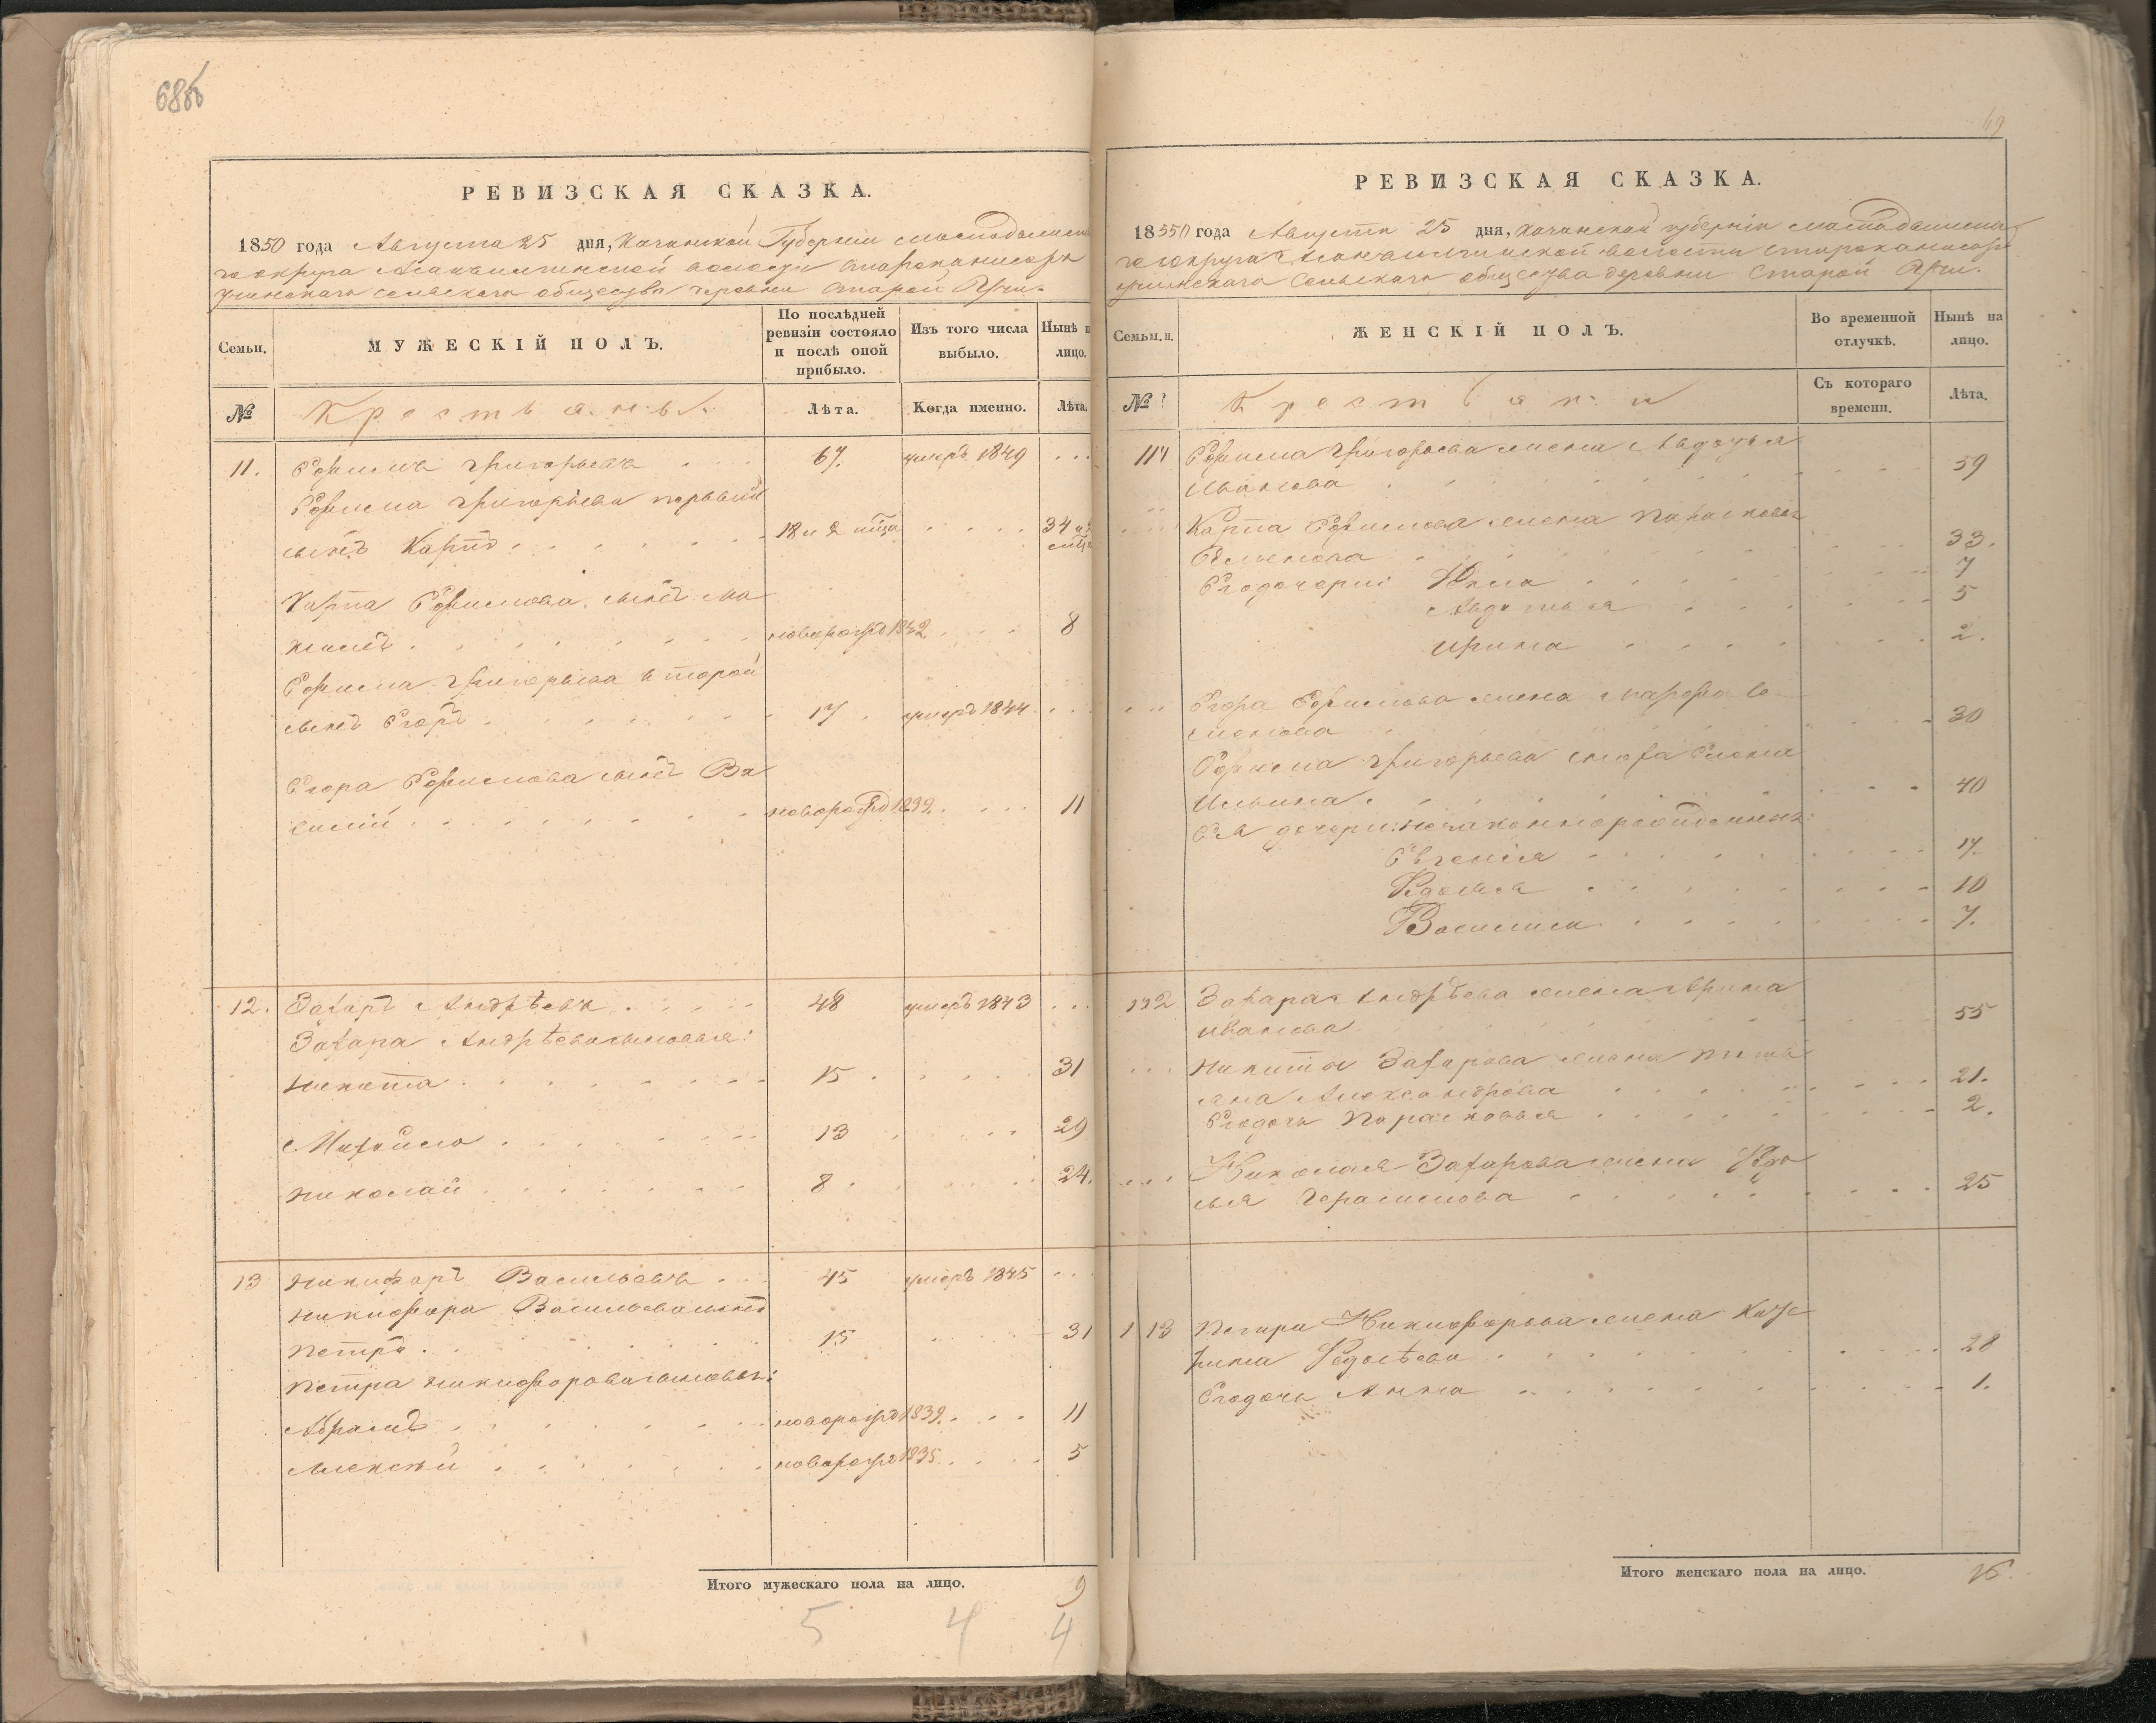 68об
РЕВИЗСКАЯ СКАЗКА.
1850 года Августа 25 дня, Казанской Губернии Мамадышска
го округа волости
сельскаго общества деревни Старой
Семьи.
МУЖЕСКІЙ ПОЛЪ.
По послѣдней ревизіи состояло и послѣ оной прибыло.
Изъ того числа выбыло.
Нынѣ н лицо.
№
Крестьяны.
Лѣта.
Когда именно.
Лѣта.
11. Ефимъ Григорьевъ 67. умеръ 1849
Ефима Григорьева первый
сынъ Карпъ 18 и 2 мца 34
Карпа Ефимова сынъ Ма
ксимъ новорожд 1842 8
Ефима Григорьева второй
сынъ Егоръ 17 умеръ 1844
Егора Ефимова сынъ Ва
силій новорожд 1839 11
12. Захаръ Андрѣевъ 48 умеръ 1843
Захара Андрѣева сыновья:
Никита 15 31
Михайло 13 29
Николай 8 24.
13 Никифоръ Васильевъ 45 умеръ 1845
Никифора Васильева сынъ
Петръ 15 31
Петра Никифорова сыновья:
Абрамъ новорожд 1839. 11
Алексѣй новорожд 1835 5
Итого мужескаго пола на лицо. 9
5 4 4
69
РЕВИЗСКАЯ СКАЗКА.
18550 года Августа 25 дня, Казанской губерніи Мамадышска
го округа волости
сельскаго общества деревни Старой
Семьи.
ЖЕНСКІЙ ПОЛЪ.
Во временной отлучкѣ.
Нынѣ на лицо.
№
Крестьянки
Съ котораго времени.
Лѣта.
11 Ефима Григорьева жена Авдотья
Иванова 59
Карпа Ефимова жена Парасковья
33.
Его дочери: 7
Авдотья 5
Ирина 2.
Егора Ефимова жена Марфа Се
менова 30
Ефима Григорьева сноха Елена
Ильина 40
Ея дочери незаконнорожденныя:
Евгенія 17.
Федосья 10
Василиса 7.
12 Захара Андрѣева жена Арина
Иванова 55
Никиты Захарова жена Тать
яна Александрова 21.
Его дочь Парасковья 2.
Николая Захарова жена Федо
сья Герасимова 25
13 Петра Никифорова жена Кате
рина Федосѣева 28
Его дочь Анна 1.
Итого женскаго пола на лицо. 16.